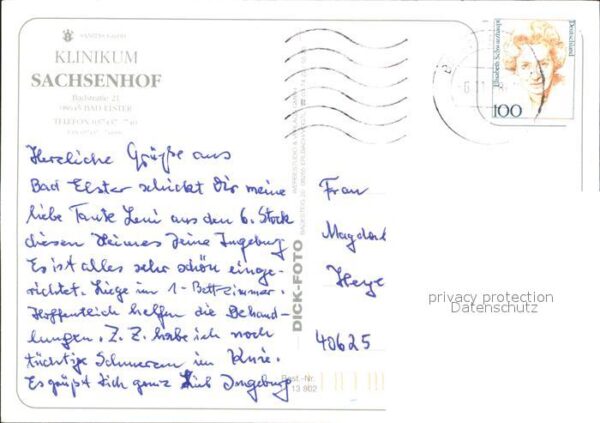 KLINIKUM
SACHSENHOF
Badstraße 21
08645 BAD ELSTER
TELEFON
Herzliche Grüße aus
Bad Elster schickt Dir meine
liebe Tante Leni aus den 6. Stock
diesen Heimes Deine Ingeburg
Es ist alles sehr schön einge-
richtet. Liege im 1-Bettzimmer.
Hoffentlich helfen die Behand-
lungen. Z. Z. habe ich noch
tüchtige Schmerzen im Knie.
Es grüßt Dich ganz lieb Ingeburg
DICK-FOTO
Best.-Nr.
13 802
Elisabeth Schwarzhaupt
Deutschland
100
Frau
Heye
40625
privacy protection
Datenschutz